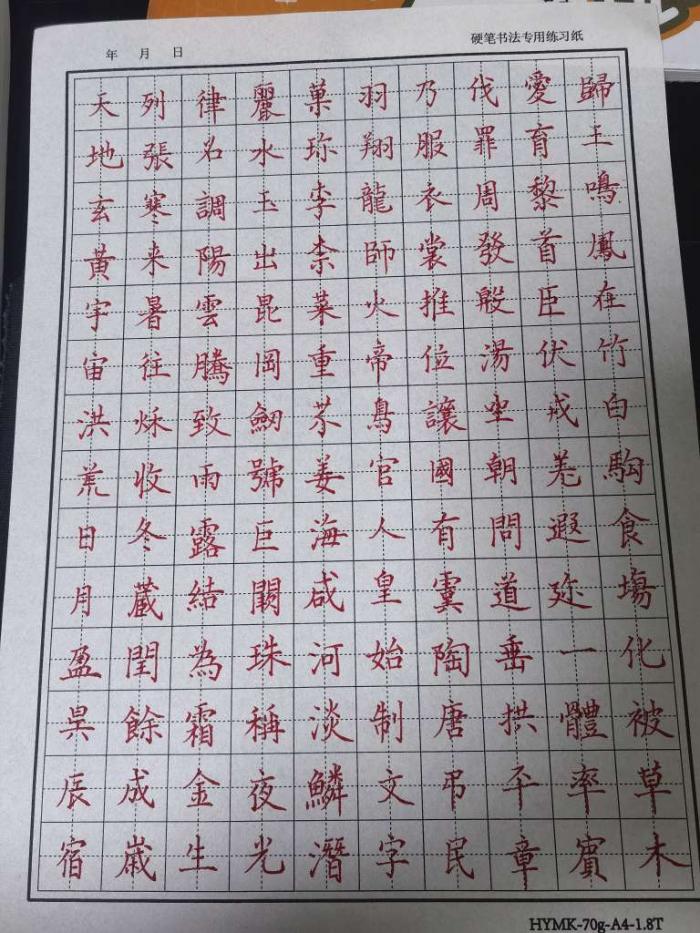 硬笔书法专用练习纸
年 月 日
天地玄黃宇宙洪荒日月盈昃辰宿
列張寒来暑往秌收冬蔵閏餘成歲
律名調陽雲騰致雨露結為霜金生
麗水玉出崑岡劒號巨闕珠稱夜光
菓珎李柰菜重芥姜海咸河淡鱗潛
羽翔龍師火帝鳥官人皇始制文字
乃服衣裳推位讓國有虞陶唐弔民
伐罪周發殷湯坐朝問道垂拱平章
愛育黎首臣伏戎羌遐迩一體率賓
歸王鳴鳳在竹白駒食場化被草木
HYMK-70g-A4-1.8T